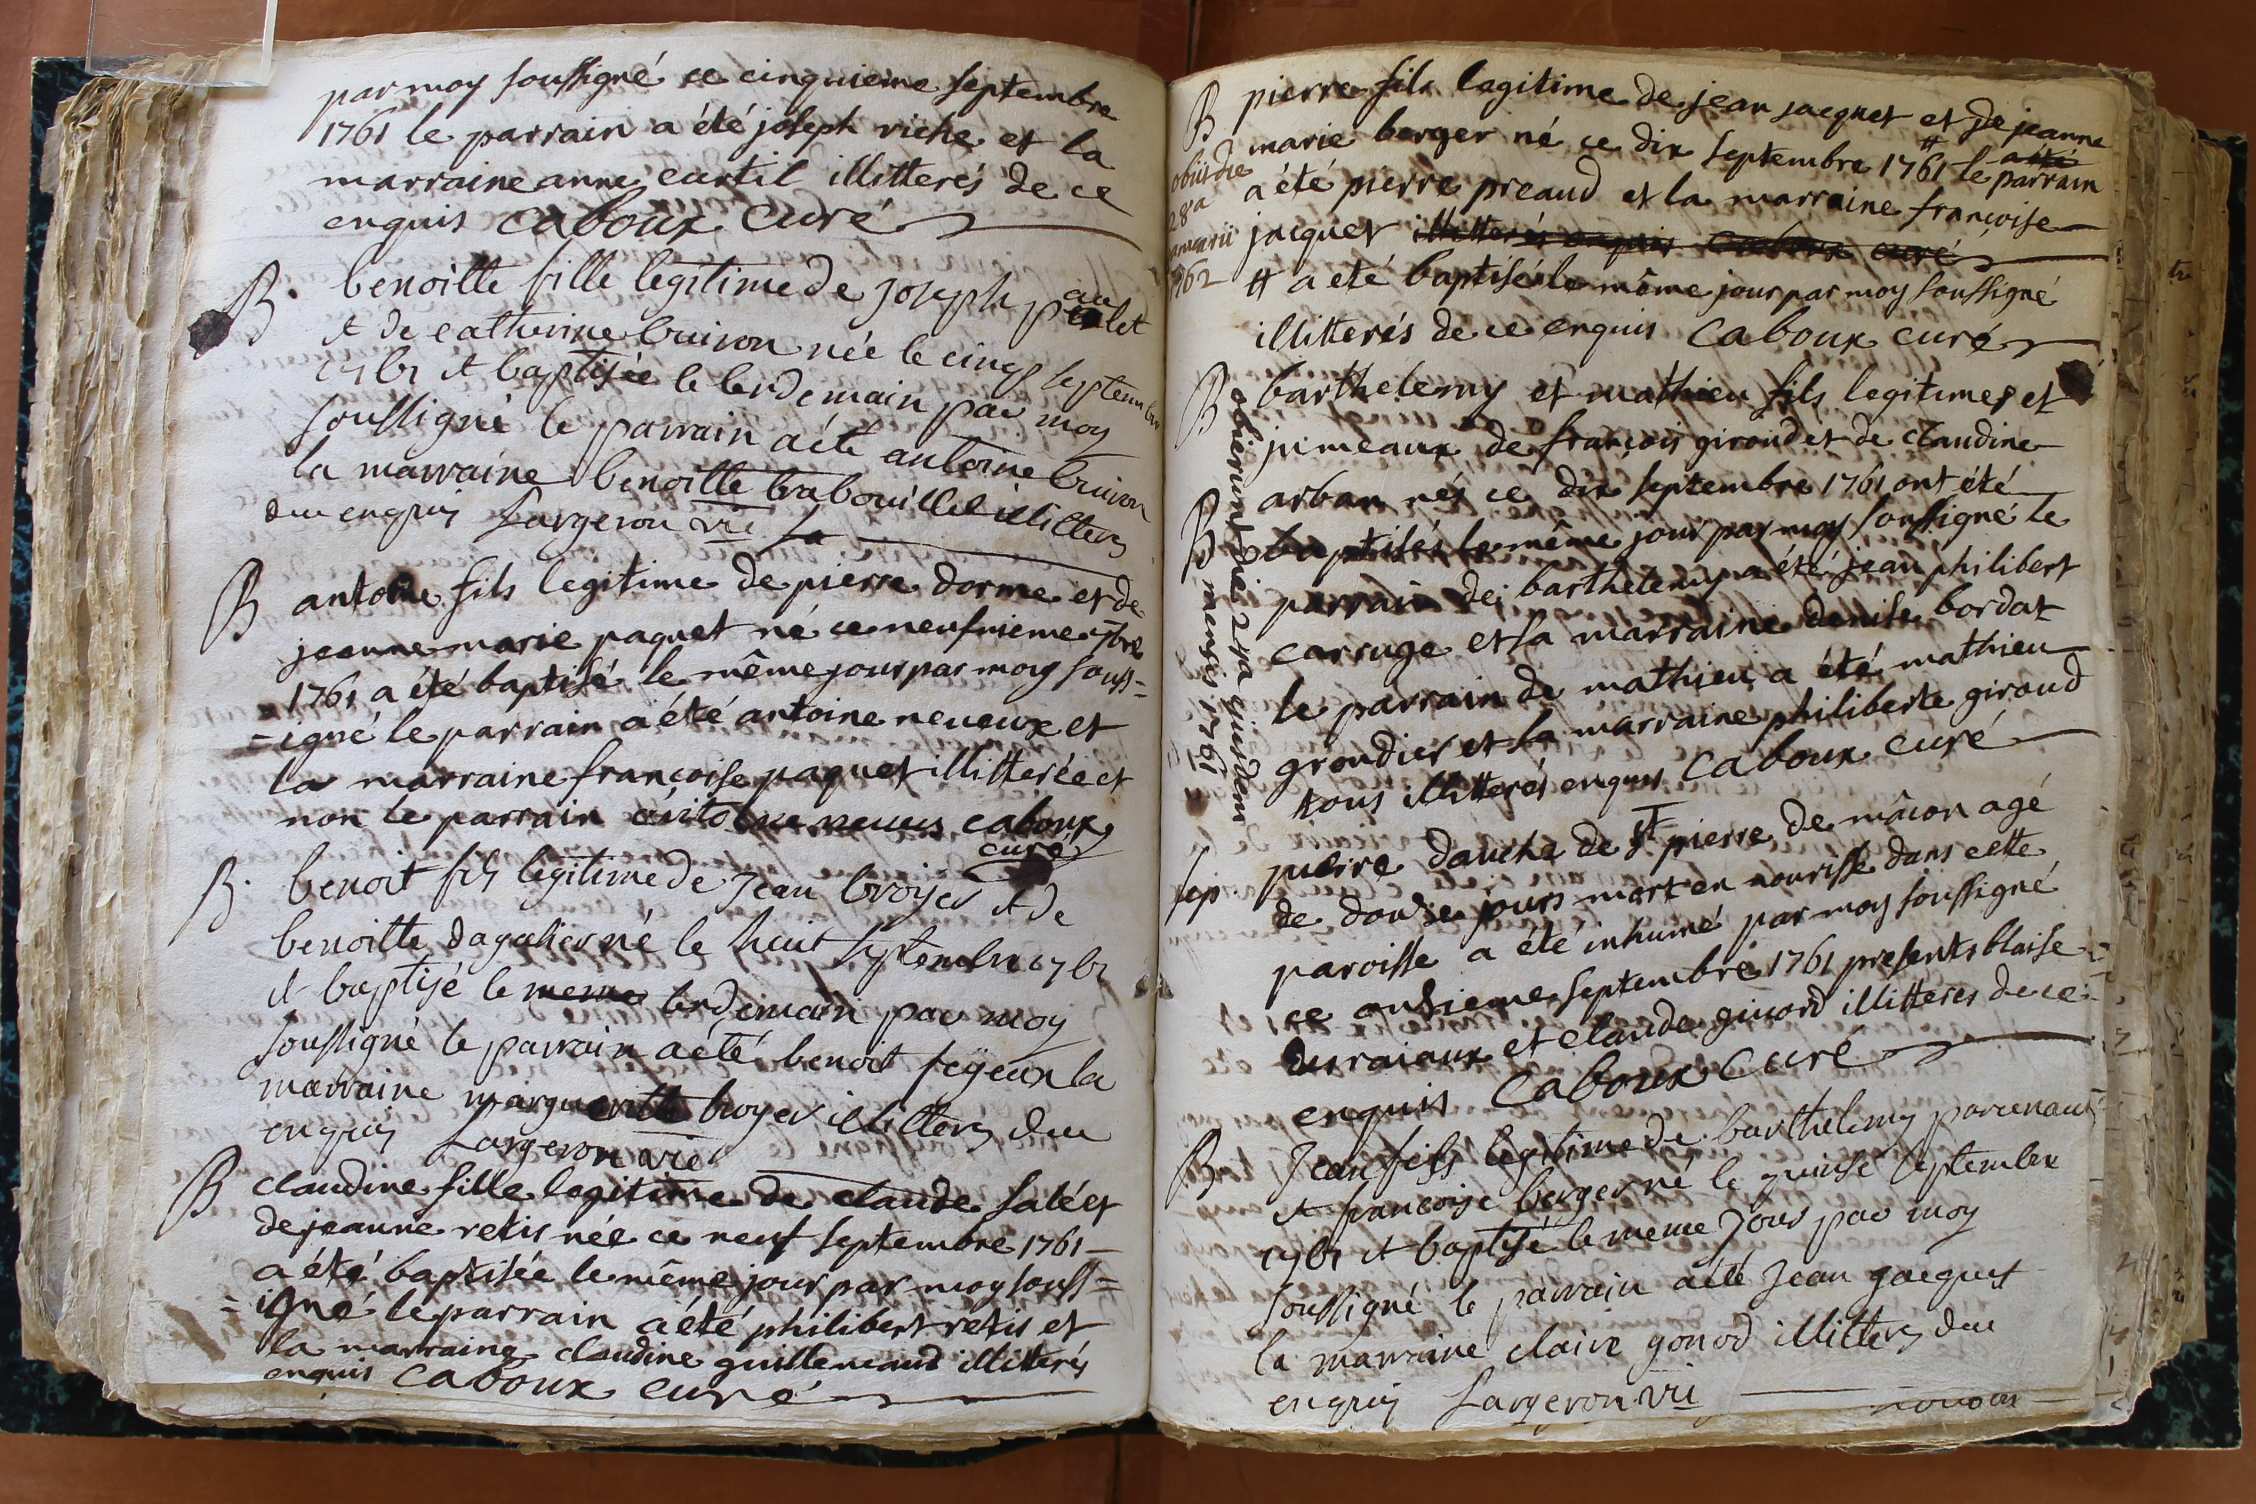 par moy soussigné ce cinquieme septembre
1761 le parrain a été joseph riche et la
marraine anne curtil illitterés de ce
enquis Caboux Curé
B. benoitte fille legitime de joseph paulet
et de catherine buiron née le cinq septembre
1761 et baptisée le lendemain par moy
soussigné le parrain a été antoine buiron
la marraine benoitte trabouillet illitterés
due enquis Largeron vic
B antoine fils legitime de pierre dorme et de
jeanne marie paquet né ce neufvieme 7bre
1761 a été baptisé le même jour par moy souss=
=igné le parrain a été antoine neveux et
la marraine françoise paquet illitterée et
non le parrain antoine neveus caboux
curé
B. benoit fils legitime de Jean broyer et de
benoitte dagalier né le huit septembre 1761
et baptisé le meme lendemain par moy
soussigné le parrain a été benoit feyeux la
marraine margueritte broyer illitterés due
enquis Largeron vic
B claudine fille legitime de claude salé et
de jeanne retis née ce neuf septembre 1761
a été baptisée le même jour par moy souss=
=igné le parrain a été philibert retis et
la marraine claudine guillemaud illitterés
enquis Caboux curé
B pierre fils legitime de jean jacquet et de jeanne
marie berger né ce dix septembre 1761 # le a été parrain
a été pierre preaud et la marraine françoise
jacquet illitterés enquis Caboux curé
# a été baptisé le même jour par moy soussigné
illitterés de ce enquis Caboux curé
obiit die
28a
januarii
1762
B barthelemy et mathieu fils legitimes et
jumeaux de françois giroud et de claudine
arban nés ce dix septembre 1761 ont été
B baptisés le même jour par moy soussigné le
parrain de barthelemy a été jean philibert
carruge et la marraine denise bordat
le parrain de mathieu a été mathieu
grondier et la marraine philiberte giroud
tous illitterés enquis Caboux curé
obierunt die 21a ejusdem
mensis 1761
sep pierre dauche de St pierre de mâcon agé
de douze jours mort en nourisse dans cette
paroisse a été inhumé par moy soussigné
ce onzieme septembre 1761 presents blaise
desraiaux et claude guiord illitteres de ce
enquis Caboux Curé
B Jean fils legitime de barthelemy
et françoise berger né le quinse septembre
1761 et baptisé le meme Jour par moy
soussigné le parrain a été Jean jacquet
la marraine claire gonod illitterés due
enquis Largeron vic